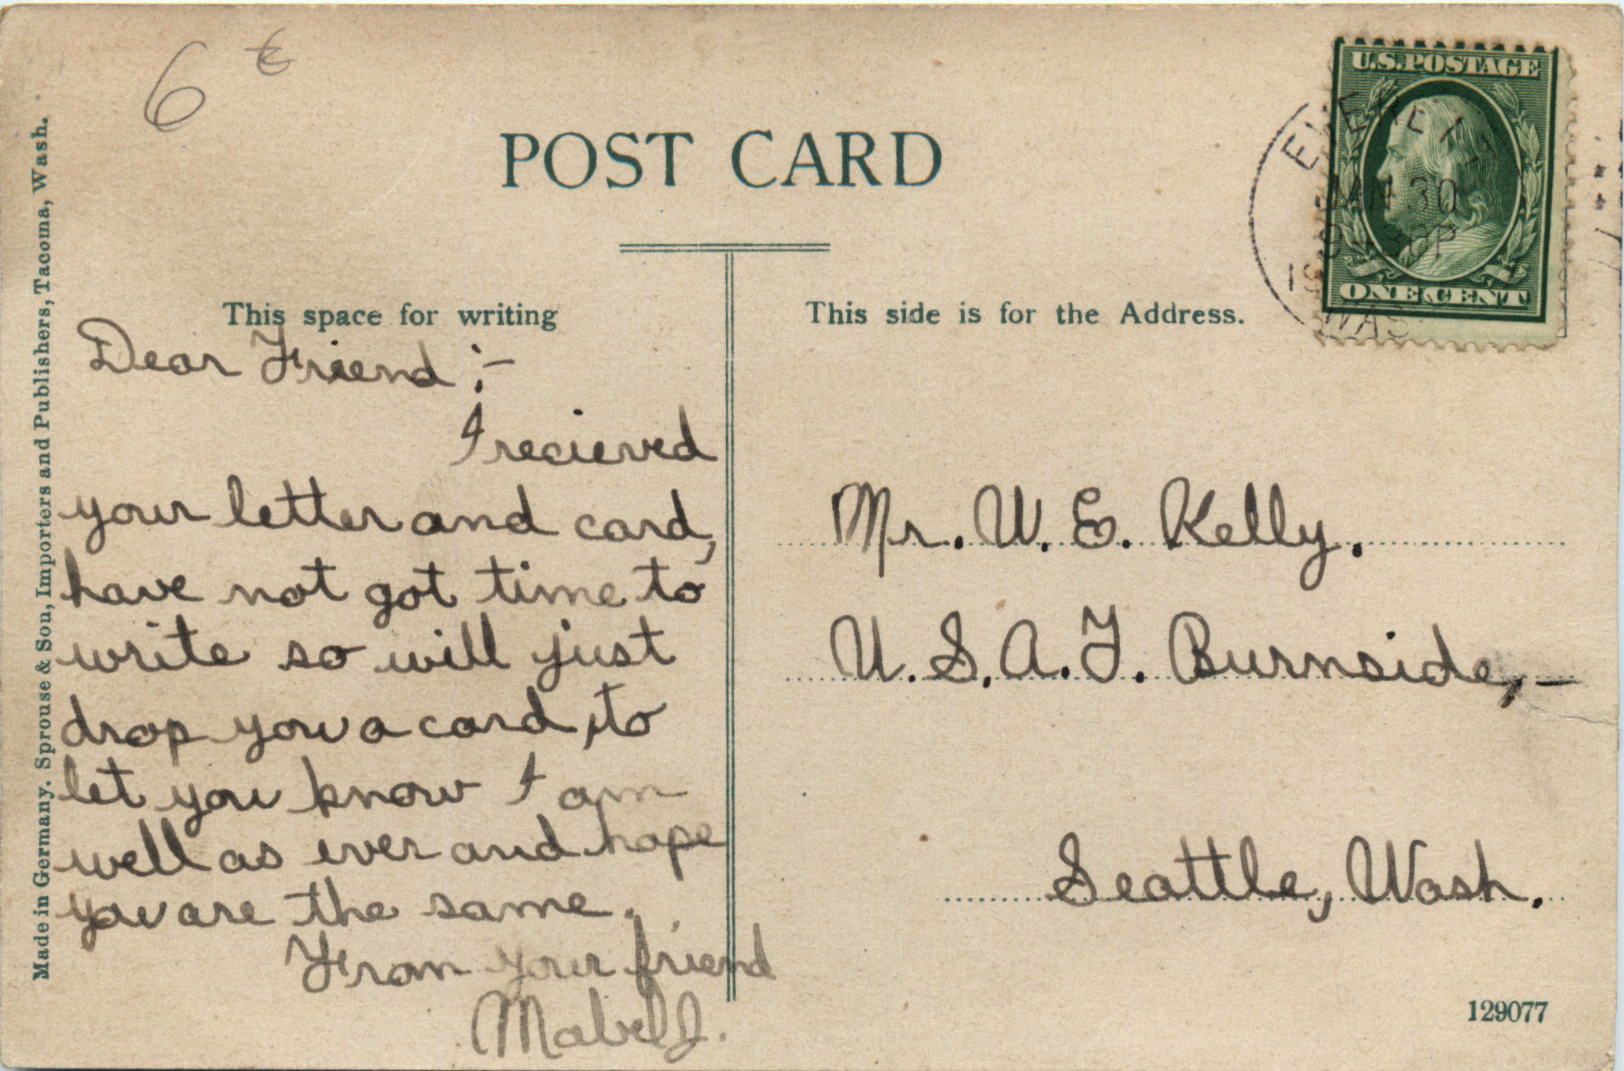 6¢
POST CARD
U.S. POSTAGE
ONE CENT
EVERETT
JAN 30
WAS
This space for writing
Dear Friend :-
I recieved
your letter and card,
have not got time to
write so will just
drop you a card, to
let you know I am
well as ever and hope
you are the same.
From your friend
Mabel J.
This side is for the Address.
Mr. W. E. Kelly.
U. S. A. T. Burnside,-
Seattle, Wash.
129077
Made in Germany. Sprouse & Son, Importers and Publishers, Tacoma, Wash.